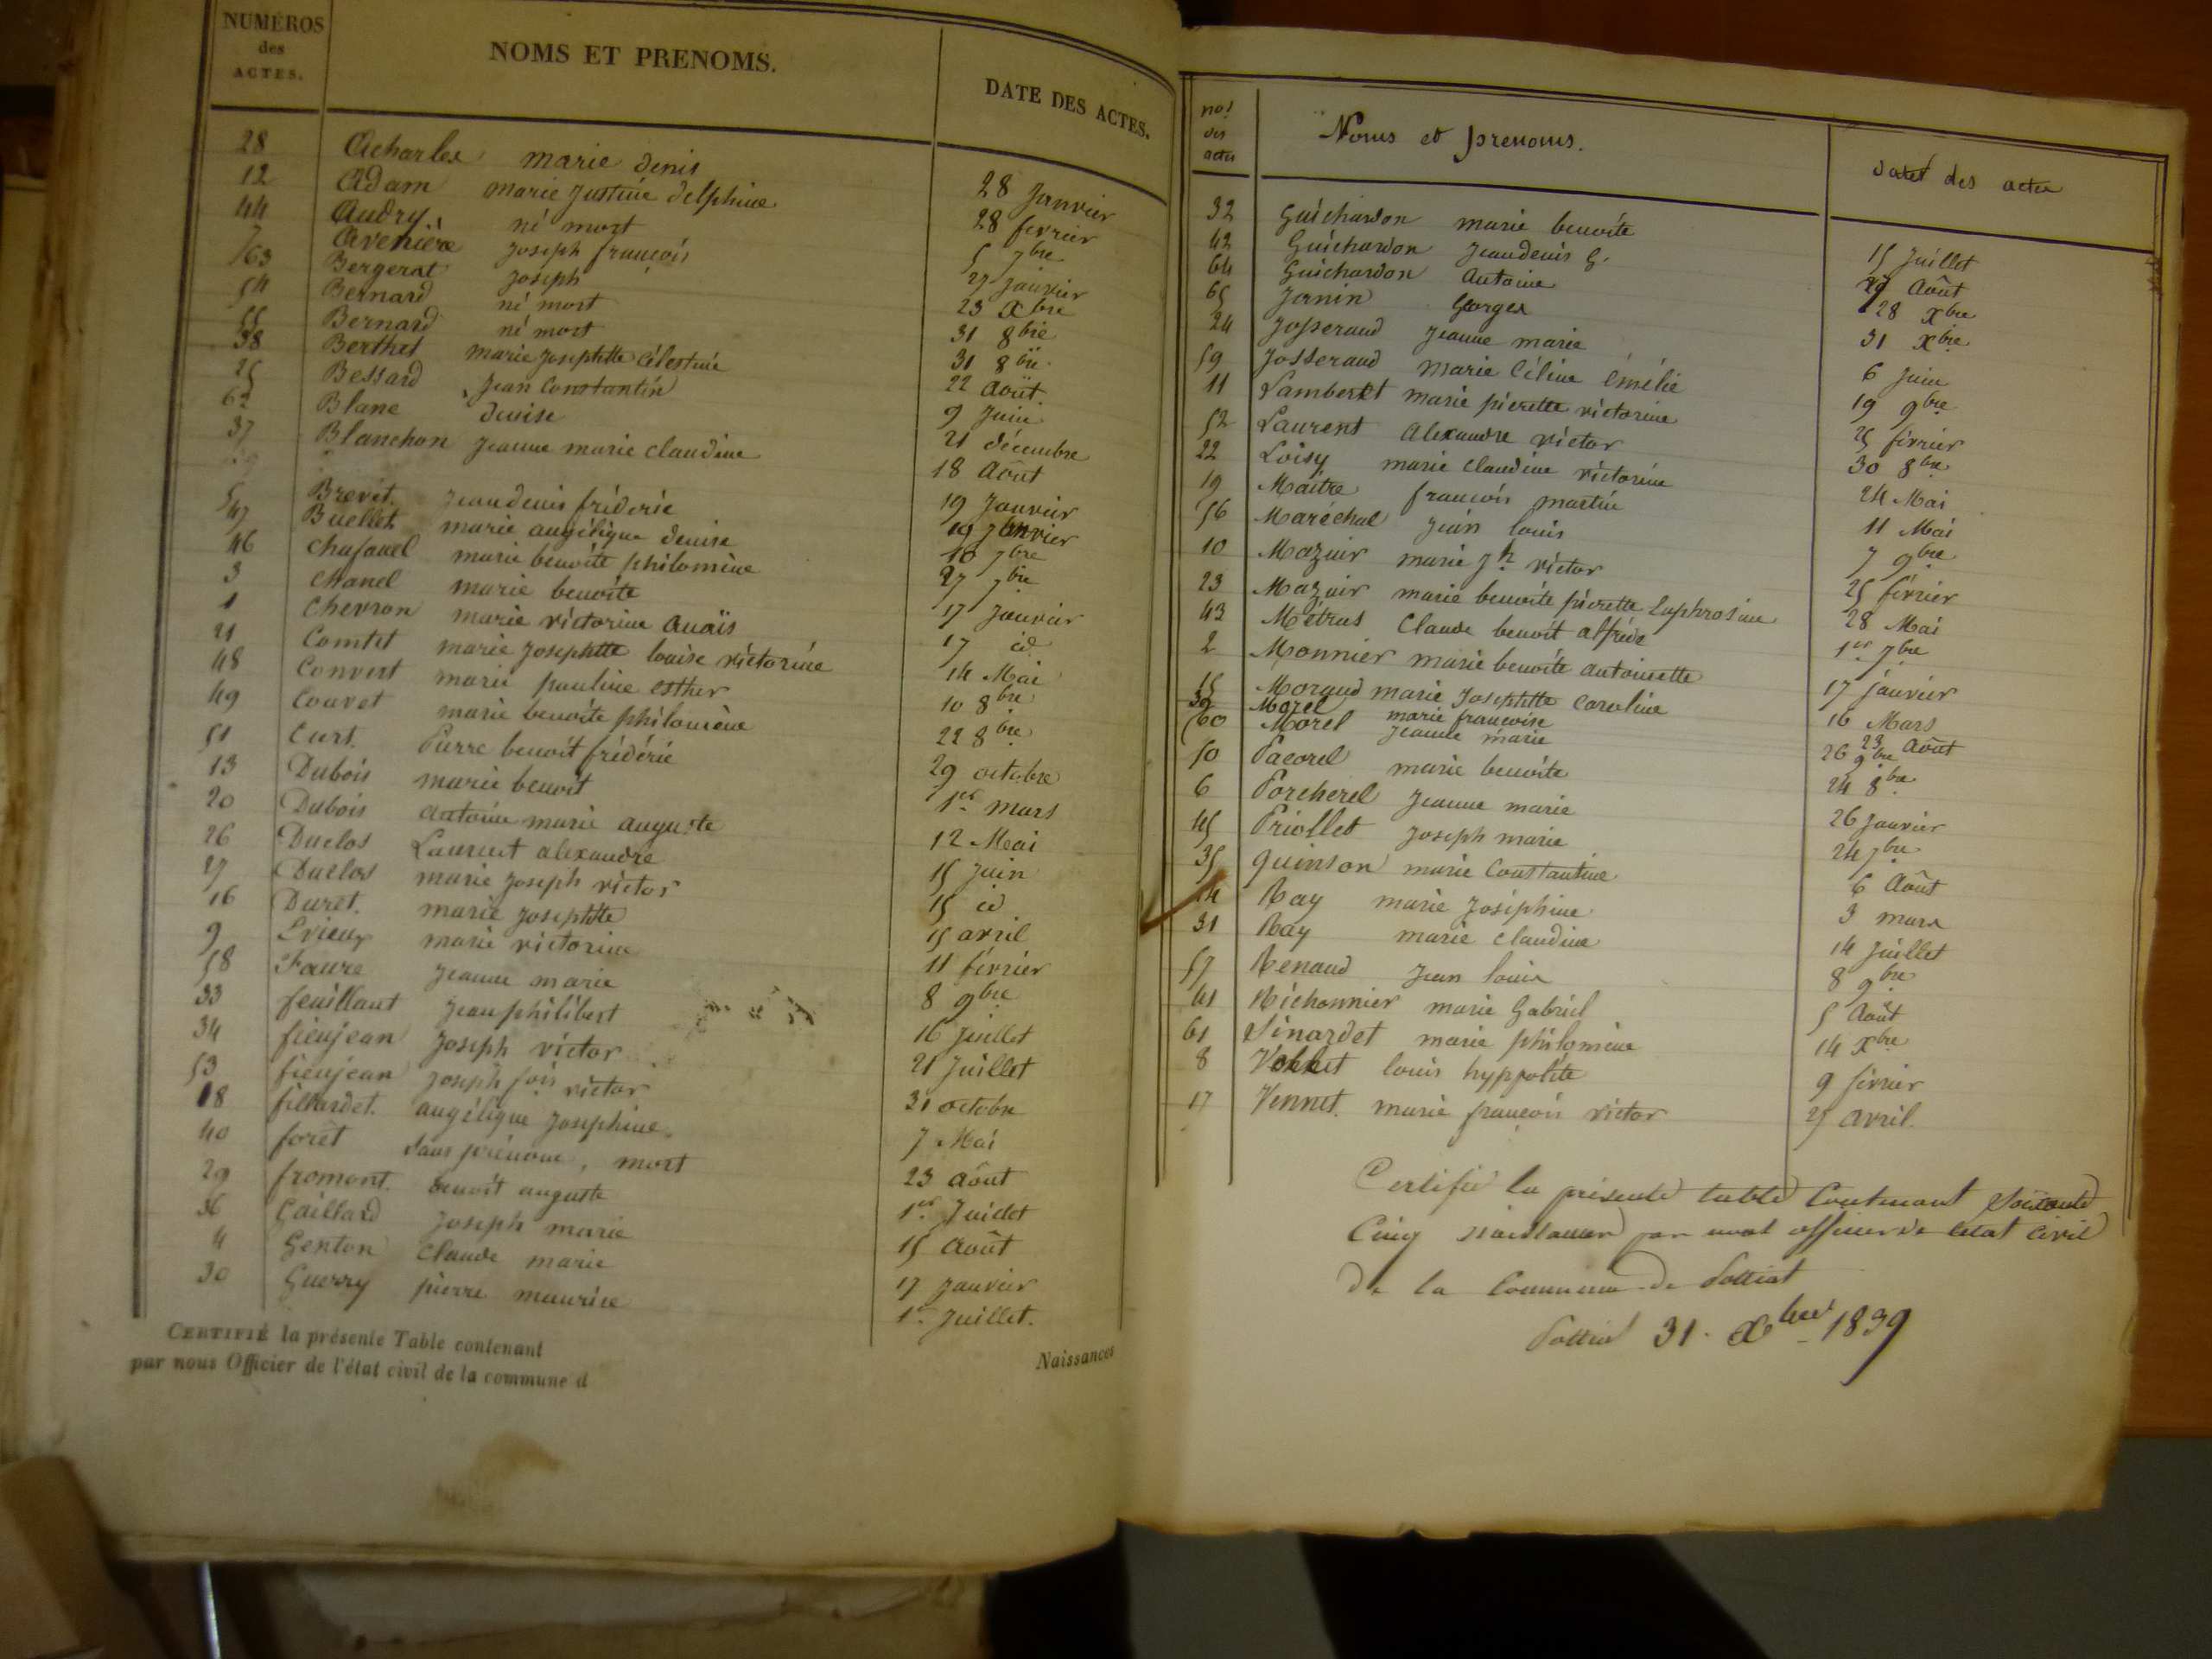 NUMÉROS
des
ACTES.
NOMS ET PRENOMS.
DATE DES ACTES.
28 Acharles marie denis 28 Janvier
12 Adam marie Justine delphine 28 fevrier
44 Audry né mort 5 7bre
7 Avenière Joseph françois 27 Janvier
63 Bergerat Joseph 23 Xbre
54 Bernard né mort 31 8bre
55 Bernard né mort 31 8bre
38 Berthet marie Josephtte Célestine 22 Août
25 Bessard Jean Constantin 9 Juin
62 Blanc denise 21 décembre
37 Blanchon Jeanne marie claudine 18 Août
Brevet Jeandenis fréderic 19 Janvier
5 Buellet marie angélique denise 19 Janvier
47 Chafanel marie benoite philomène 10 7bre
46 Chanel marie benoite 27 7bre
3 Chevron marie victorine Anaïs 17 Janvier
1 Comtet marie Josephtte louise victorine 17 id
21 Convert marie pauline esther 14 Mai
48 Couvet marie benoite philomène 10 8bre
49 Curt. Pierre benoit frédéric 22 8bre
51 Dubois marie benoit 29 octobre
13 Dubois Antoine marie auguste 1er mars
20 Duclos Laurent alexandre 12 Mai
26 Duclos marie Joseph victor 15 Juin
27 Duret. marie Josephtte 15 id
16 Evieux marie victorine 15 avril
9 Faure Jeanne marie 11 février
58 feuillant Jean philibert 8 9bre
33 fieujean Joseph victor 16 Juillet
34 fieujean Joseph fois victor 21 Juillet
53 fillardet. angélique Josephine. 31 octobre
18 forêt sans prénom, mort 7 Mai
40 fromont. benoit auguste 23 Août
29 Gaillard Joseph marie 1er Juillet
36 Genton Claude marie 15 Août
4 Guerry pierre maurice 17 Janvier
30 1er Juillet.
CERTIFIÉ la présente Table contenant
par nous Officier de l'état civil de la commune d
Naissances
nos
des
actes
Noms et prenoms.
dates des actes
32 Guichardon marie benoite 15 Juillet
42 Guichardon Jeandenis G. 29 Août
64 Guichardon Antoine 28 Xbre
65 Janin Georges 31 Xbre
24 Josserand Jeanne marie 6 Juin
59 Josserand marie Céline émélie 19 9bre
11 Lambert marie pierrette victorine 25 février
52 Laurent Alexandre victor 30 8bre
22 Loisy marie claudine victorine 24 Mai
19 Maitre françois martin 11 Mai
56 Maréchal Jean louis 7 9bre
10 Mazuir marie Jh victor 25 février
23 Mazuir marie benoite pierrette Euphrosine 28 Mai
43 Métras Claude benoit alfred 1er 7bre
2 Monnier marie benoite antoinette 17 janvier
15 Morand marie Josephtte Caroline 16 Mars
39 Morel marie françoise 23 Août
60 Morel Jeanne marie 26 9bre
50 Pacorel marie benoite 24 8bre
6 Porcherel Jeanne marie 26 Janvier
45 Priollet Joseph marie 24 7bre
35 Quinson marie Constantine 6 Août
14 Ray marie Joséphine 3 mars
31 Ray marie claudine 14 Juillet
57 Renaud Jean louis 8 9bre
41 Richonnier marie Gabriel 5 Août
61 Sinardet marie philomène 14 Xbre
8 louis hyppolite 9 février
17 Vennet. marie françois victor 25 Avril.
Certifié la présente table Contenant Soixante
Cinq naissances par nous officier de l'état Civil
de la Commune de
31. Xbre 1839